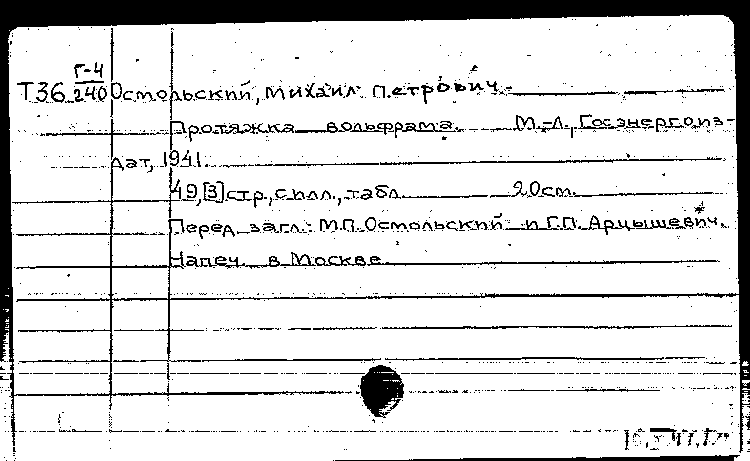 Г-4
Т36 240 Осмольский, Михаил Петрович.
Протяжка вольфрама. М.-Л., Госэнергоиз-
дат, 1941.
49,[3]стр., с илл., табл. 20см.
Перед загл.: М.П.Осмольский и Г.П. Арцышевич.
Напеч. в Москве.